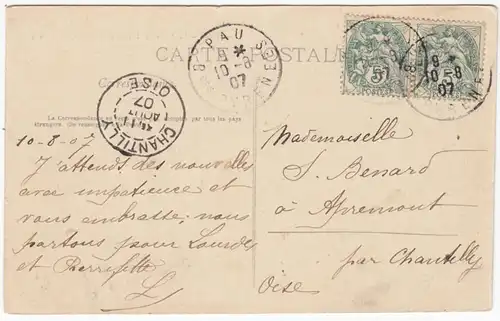 CARTE POSTALE
PAU
10-8
07
8
10-8
07
5
5
POSTES
Correspondance
La Correspondance au
par tous les pays
CHANTILLY
OISE
07
10-8-07
J'attends des nouvelles
avec impatience et
vous embrasse, nous
partons pour Lourdes
et Pierrefitte
L
Mademoiselle
S. Benard
à Apremont
par Chantilly
Oise